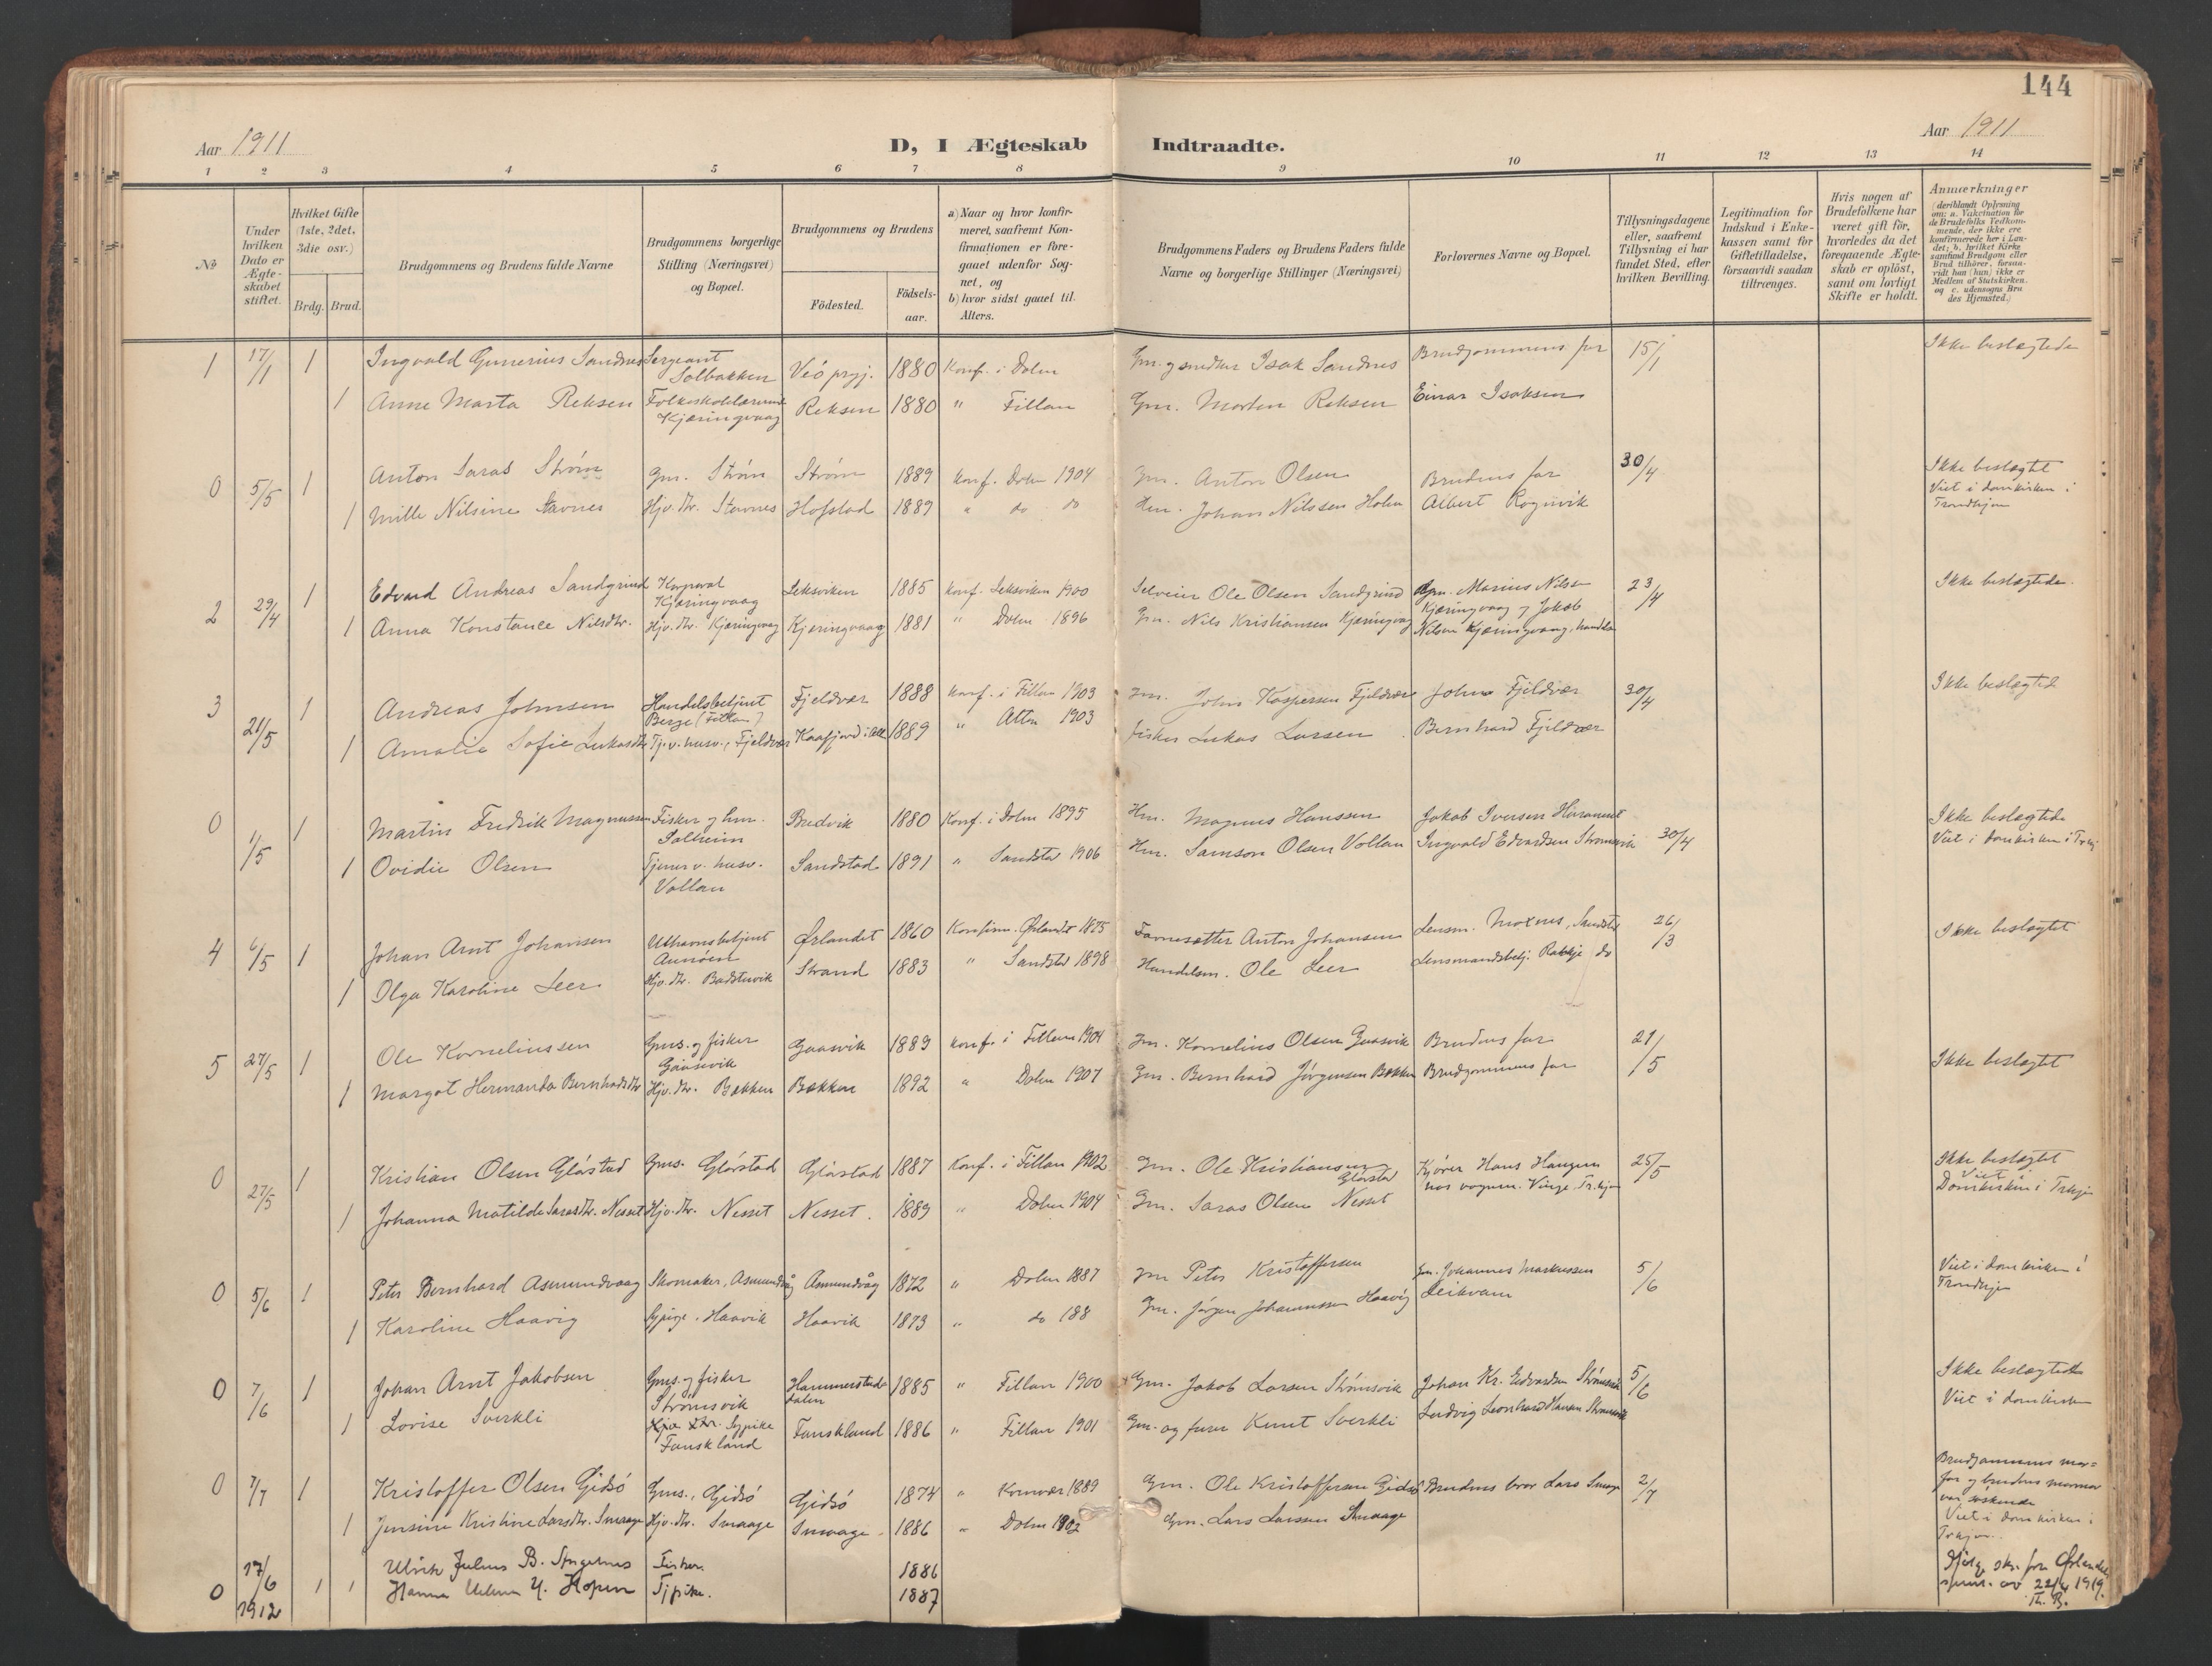 144
Aar 1911
D, I Ægteskab Indtraadte.
Aar 1911
1 2 3 4 5 6 7 8 9 10 11 12 13 14
No
Under hvilken Dato er Ægteskabet stiftet.
Hvilket Gifte (1ste, 2det, 3die osv.)
Brdg. Brud.
Brudgommens og Brudens fulde Navne
Brudgommens borgerlige Stilling (Næringsvei) og Bopæl.
Brudgommens og Brudens
Födested.
Födsels-aar.
a) Naar og hvor konfirmeret, saafremt Konfirmationen er foregaaet udenfor Sognet, og
b) hvor sidst gaaet til Alters.
Brudgommens Faders og Brudens Faders fulde Navne og borgerlige Stillinger (Næringsvei)
Forlovernes Navne og Bopæl.
Tillysningsdagene eller, saafremt Tillysning ei har fundet Sted, efter hvilken Bevilling.
Legitimation for Indskud i Enkekassen samt for Giftetilladelse, forsaavidt saadan tiltrænges.
Hvis nogen af Brudefolkene har været gift för, hvorledes da det foregaaende Ægteskab er oplöst, samt om lovligt Skifte er holdt.
Anmærkninger (deriblandt Oplysning om: a. Vakcination for de Brudefolks Vedkommende, der ikke ere konfirmerede her i Landet; b. hvilket Kirkesamfund Brudgom eller Brud tilhörer, forsaavidt han (hun) ikke er Medlem af Statskirken. og c. udensogns Brudes Hjemsted.)
1 17/1 1 Ingvald Gunerius Sandnes Sergeant Solbakken Veö prgj. 1880 Konf. i Dolm Gm. og smed Isak Sandnes Brudgommens far 15/1 Ikke beslægtede
1 Anne Marta Reksen Folkeskolelærerinde Kjæringvaag Reksen 1880 " Fillan Gm. Morten Reksen Einar Isaksen
0 5/5 1 Anton Saras Strøm Gm. Strøm Strøm 1889 Konf. Dolm 1904 Gm. Anton Olsen Brudens far 30/4 Ikke beslægtet
1 Mille Nilsine Stavnes Hjv. dtr. Stavnes Hofstad 1889 " do do Hm. Johan Nilssen Holm Albert Viet i domkirken i Trondhjem
2 29/4 1 Edvard Andreas Sandgrind Korporal Kjæringvaag Leksviken 1885 Konf. Leksviken 1900 Selveier Ole Olsen Sandgrind Gm. Marius Nilsen 23/4 Ikke beslægtede.
1 Anna Konstance Nilsdtr. Hjv. dtr. Kjæringvaag Kjæringvaag 1881 " Dolm 1896 Gm. Nils Kristiansen Kjæringvaag Kjæringvaag og Jakob Nilsen Kjæringvaag, handelsm
3 21/5 1 Andreas Johnsen Handelsbetjent Berge (Fillan) Fjeldvær 1888 Konf. i Fillan 1903 Gm. John Kaspersen Fjeldvær John Fjeldvær 30/4 Ikke beslægtede
1 Amalie Sofie Lukasdtr Tj. v. husv., Fjeldvær Kaafjord i Alt 1889 " Alten 1903 fisker Lukas Larsen Bernhard Fjeldvær
0 1/5 1 Martin Fredrik Magnussen Fisker og hm. Solheim Bredvik 1880 Konf. i Dolm 1895 Hm. Magnus Hanssen Jakob Iversen 30/4 Ikke beslægtede
1 Ovidie Olsen Tjener v. husv. Vollan Sandstad 1891 " Sandstad 1906 Hm. Samson Olsen Vollan Ingvald Edvardsen Strømsvik Viet i domkirken i Trhj
4 6/5 1 Johan Arnt Johansen Ørlandet 1860 Konfirm. Ørlandet 1875 Anton Johansen Lensm. Moxnes, Sandstad 26/3 Ikke beslægtet
1 Olga Karoline Leer Hjv. dtr. Badstuvik Strand 1883 " Sandstad 1898 Handelsm. Ole Leer Lensmandsbetj. do
5 27/5 1 Ole Korneliussen Gms. og fisker Gaasvik Gaasvik 1889 Konf. i Fillan 1904 Gm. Kornelius Olsen Gaasvik Brudens far 21/5 Ikke beslægtet
1 Margot Hermanda Bernhardsdtr Hjv. dtr. Bakken Bakken 1892 " Dolm 1907 Gm. Bernhard Jørgensen Bakken Brudgommens far
0 27/5 1 Kristian Olsen Gløstad Gms. Gløstad Gløstad 1887 Konf. i Fillan 1902 Gm. Ole Kristiansen Gløstad Kjører Hans Haugen 25/5 Ikke beslægtet
1 Johanna Matilde Sarasdtr. Nesset Hjv. dtr. Nesset Nesset. 1889 " Dolm 1904 Gm. Saras Olsen Nesset hos vognm. Vinge, Tr.hj. Viet Domkirken i Trhjem
0 5/6 1 Peter Bernhard Asmundvaag Skomaker, Asmundvåg Asmundvåg 1872 " Dolm 1887 Gm Peter Kristoffersen Gm. Johannes Markussen 5/6 Viet i domkirken i
1 Karoline Haavig Sypige, Haavik Haavik 1873 " do 188 Gm. Jørgen Johannessen Haavig Leikvam Trondhjem
0 7/6 1 Johan Arnt Jakobsen Gms. og fisker Strømsvik Hammerstad dalen 1885 " Fillan 1900 Gm. Jakob Larsen Strømsvik Johan Kr. Edvardsen Strømsvik 5/6 Ikke beslægtede
1 Lovise Sverkli Sypike Fanskland Fanskland 1886 " Fillan 1901 Gm. og furer Knut Sverkli Ludvig Leonhard Hansen Strømsvik Viet i domkirken
0 7/7 1 Kristoffer Olsen Gjdsö Gms., Gjdsö Gjdsö 1874 " Kornvær 1889 Gm. Ole Kristoffersen Gjdsö Brudens bror Lars Smage 2/7 Brudgommens morfar og brudens mormor var søskende
1 Jensine Kristine Larsdtr. Smaage Hjv. dtr. Smaage Smaage 1886 " Dolm 1902 Gm. Lars Larssen Smaage Viet i domkirken i Trhjem.
0 17/6 1912 1 1 Ulrik Julius B. Fisker. 1886
Hanna Hopen Sypike. 1887 skr. fra Ørlandet av 22/4 1919. Th. B.